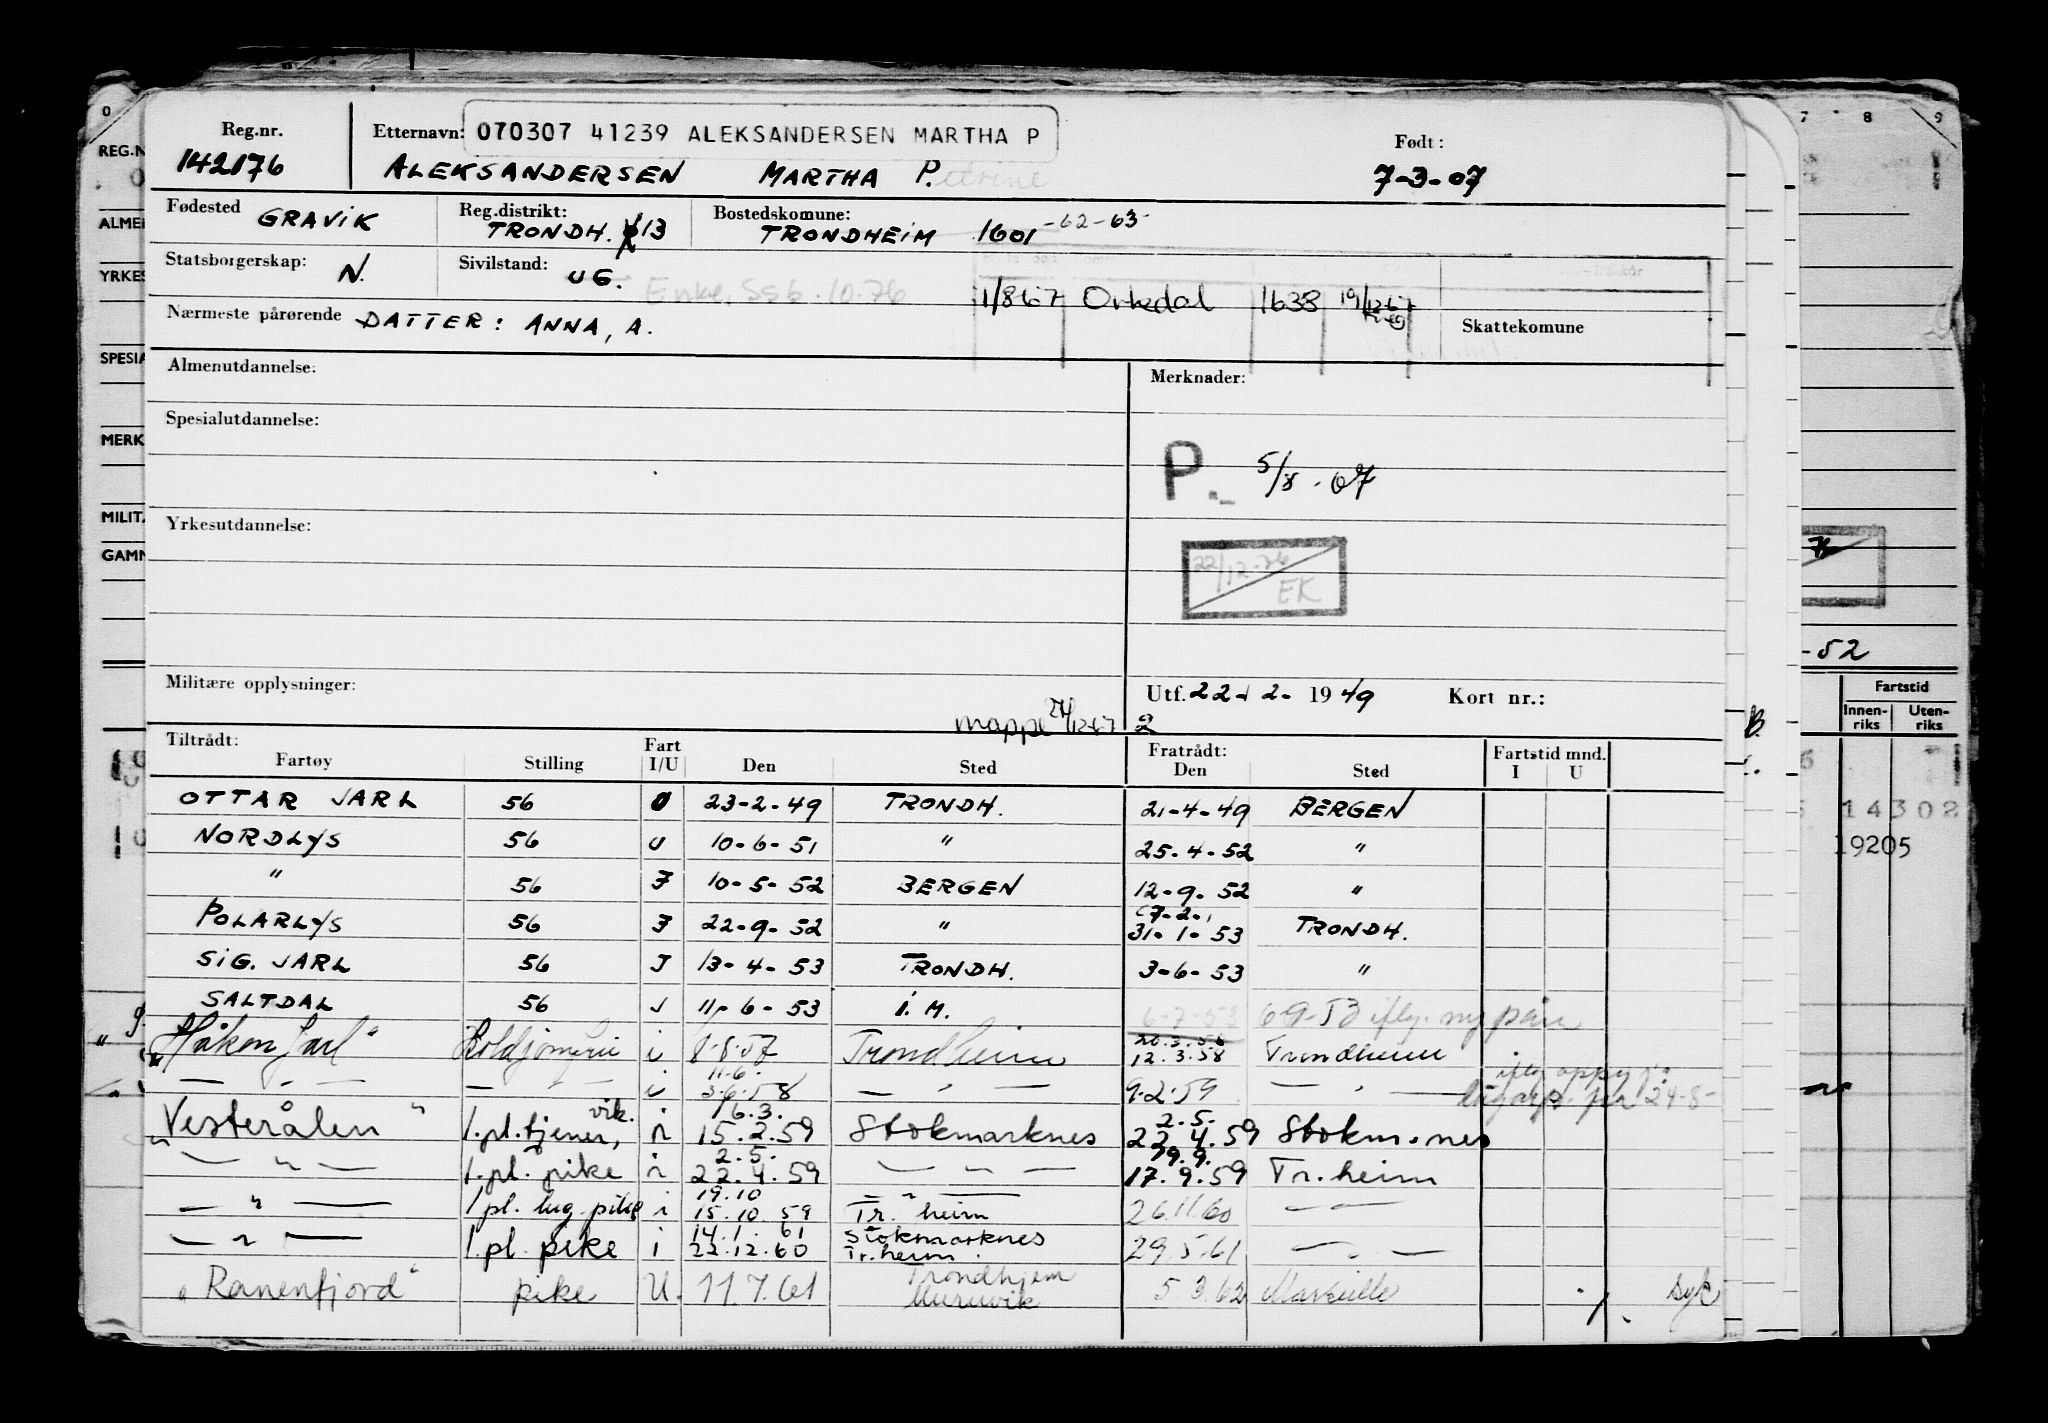 Reg.nr. Etternavn: 070307 41239 ALEKSANDERSEN MARTHA P Født:
142176 ALEKSANDERSEN MARTHA P.etrine 7-3-07
Fødested GRAVIK Reg.distrikt: TRONDH. 13 Bostedskomune: TRONDHEIM 1601 -62-63-
Statsborgerskap: N. Sivilstand: UG. Enke, Ssb. 10.76
1/8 67 Orkedal 1638 19/12 67
Nærmeste pårørende DATTER: ANNA, A. Skattekomune
Almenutdannelse: Merknader:
Spesialutdannelse:
P. 5/8-07
Yrkesutdannelse:
22/12-76 EK
Militære opplysninger: Utf. 22-2-1949 Kort nr.:
mappe 2
Tiltrådt: Fart Fratrådt: Fartstid mnd.
Fartøy Stilling I/U Den Sted Den Sted I U
OTTAR JARL 56 U 23-2-49 TRONDH. 21-4-49 BERGEN
NORDLYS 56 U 10-6-51 " 25-4-52 "
" 56 I 10-5-52 BERGEN 12-9-52 "
7-2-
POLARLYS 56 I 22-9-52 " 31-1-53 TRONDH.
SIG. JARL 56 I 13-4-53 TRONDH. 3-6-53 "
SALTDAL 56 I 11-6-53 I.M. 6-7-53
"Håkon Jarl" Koldjomfru i 8.8.57 Trondheim 12.3.58 Trondheim
11.6.
— " — — " — i 3.6.58 — " — 9.2.59 — " —
vik. 16.3. 2.5.
"Vesterålen" 1.pl.tjener, i 15.2.59 Stokmarknes 22.4.59 Stokm.nes
2.5. 19.9.
— " — 1.pl. pike i 22.4.59 — " — 17.9.59 Tr.heim
19.10
— " — 1 pl. lug.pike i 15.10.59 Tr.heim 26.11.60 — " —
14.1.61 Stokmarknes
— " — 1.pl. pike i 22.12.60 Tr.heim 29.5.61 — " —
Trondhjem
"Ranenfjord" pike U. 11.7.61 Muruvik 5.3.62 Marseille syk
REG.N
ALMEN
YRKES
SPESIA
MERK
MILIT.
GAMM
7 8 9
-52
Fartstid
Innen-riks Uten-riks
14302
19205